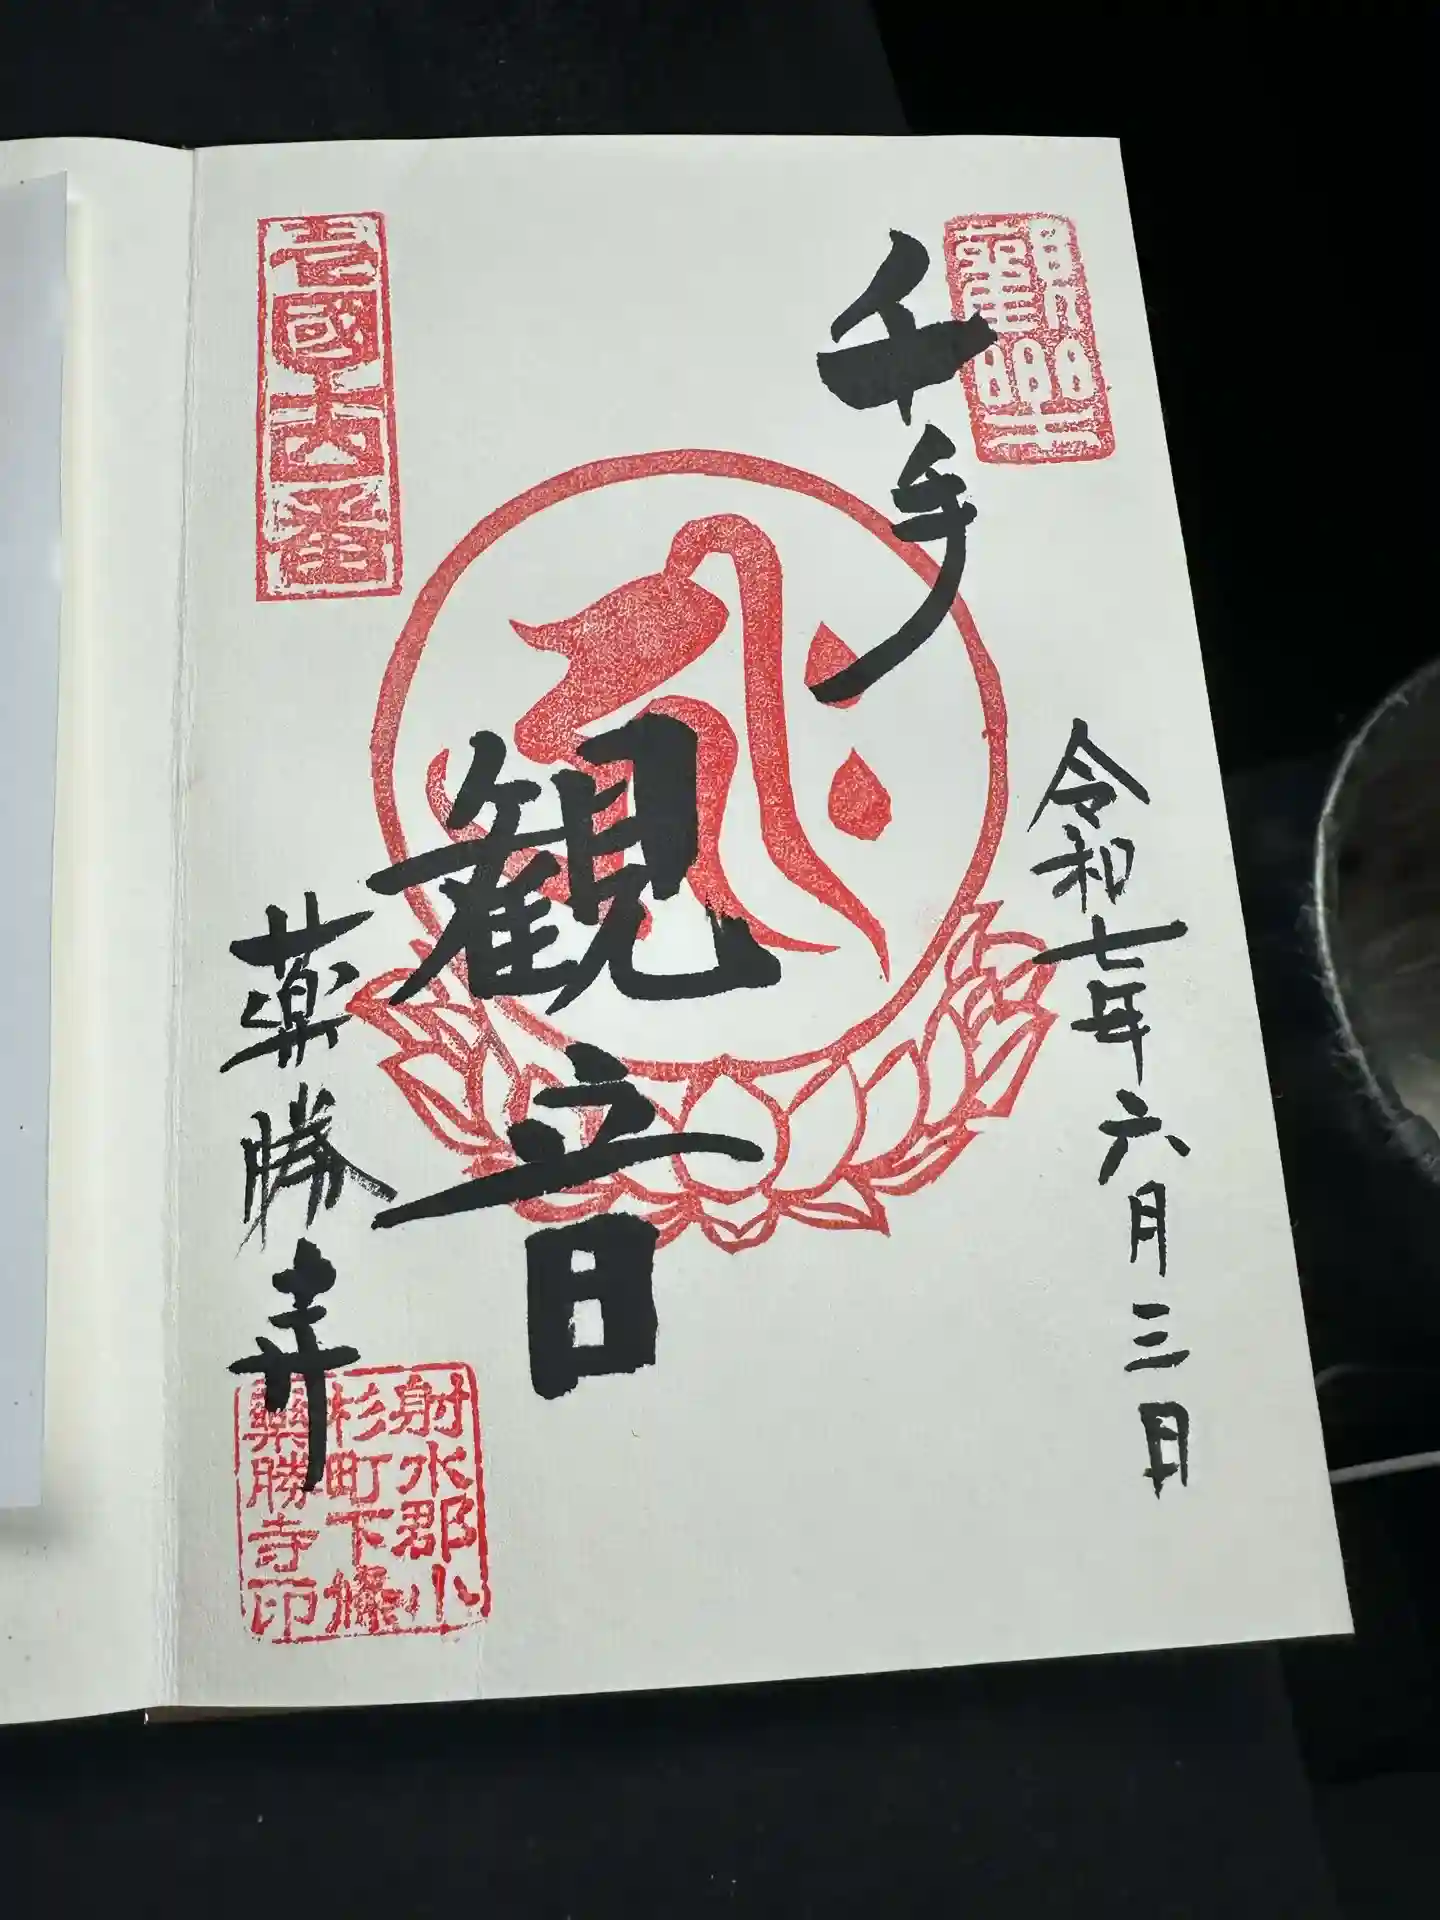 令和七年六月三日
千手
観音
國十四番
薬勝寺
射水郡小
杉町下條
藥勝寺印